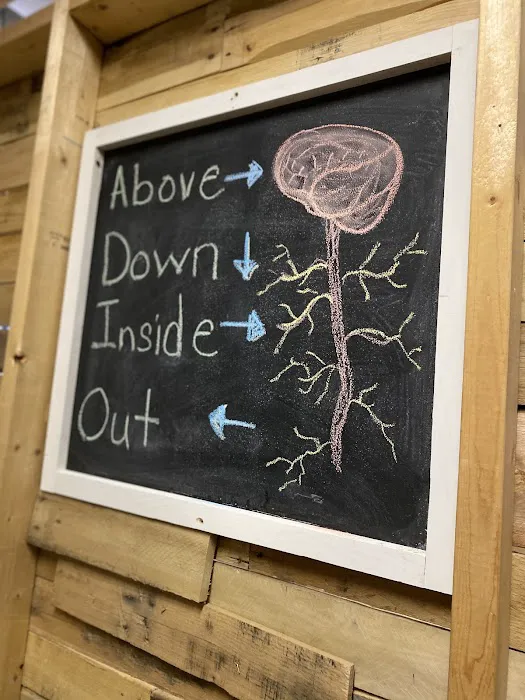 Above
Down
Inside
Out